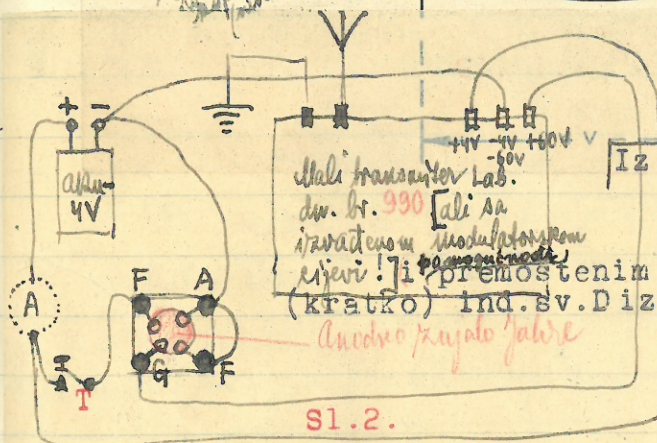 + -
aku-
4V
+4V -4V +60V
-60V
V
Iz
Mali transmiter Lab.
dn. br. 990 [ali sa
izvađenom modulatorskom
cijevi!] i premoštenim
(kratko) ind.sv.Diz
Anodno zujalo
A
F A
G F
T
Sl.2.